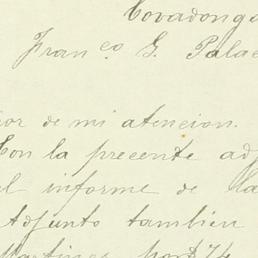 Covadonga
Fran.co G. Palac
or de mi atencion.
Con la precente adj
l informe de la
Adjunto tambien
Martinez por $74